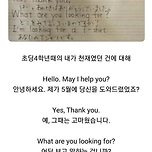 Thank you.
What are you looking for?
초딩4학년때의 내가 천재였던 건에 대해
Hello. May I help you?
안녕하세요. 제가 5월에 당신을 도와드렸었죠?
Yes, Thank you.
예, 그때는 고마웠습니다.
What are you looking for?
어딜 보고 말하는 겁니까?